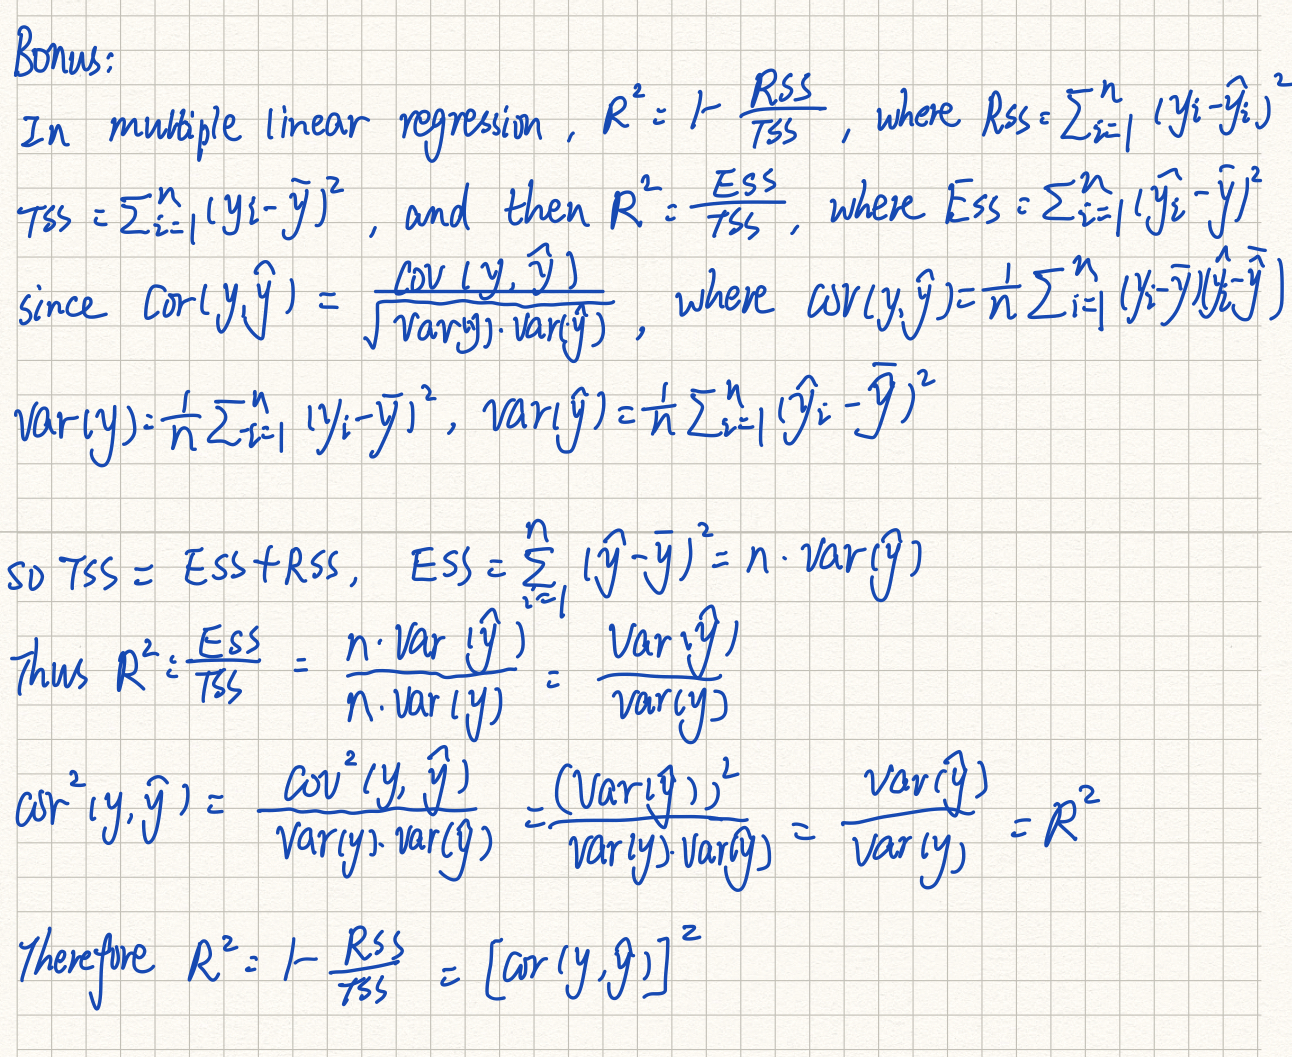 Bonus:
In multiple linear regression, R² = 1 - RSS/TSS, where RSS = ∑ᵢ₌₁ⁿ (yᵢ - ŷᵢ)²
TSS = ∑ᵢ₌₁ⁿ (yᵢ - ȳ)², and then R² = ESS/TSS, where ESS = ∑ᵢ₌₁ⁿ (ŷᵢ - ȳ)²
since Cor(y, ŷ) = cov(y, ŷ)/√(Var(y)·Var(ŷ)), where cov(y, ŷ) = 1/n ∑ᵢ₌₁ⁿ (yᵢ - ȳ)(ŷᵢ - ŷ̄)
Var(y) = 1/n ∑ᵢ₌₁ⁿ (yᵢ - ȳ)², Var(ŷ) = 1/n ∑ᵢ₌₁ⁿ (ŷᵢ - ŷ̄)²
so TSS = ESS + RSS, ESS = ∑ᵢ₌₁ⁿ (ŷ - ȳ)² = n · Var(ŷ)
Thus R² = ESS/TSS = n·Var(ŷ)/n·Var(y) = Var(ŷ)/Var(y)
cor²(y, ŷ) = cov²(y, ŷ)/Var(y)·Var(ŷ) = (Var(ŷ))²/Var(y)·Var(ŷ) = Var(ŷ)/Var(y) = R²
Therefore R² = 1 - RSS/TSS = [cor(y, ŷ)]²